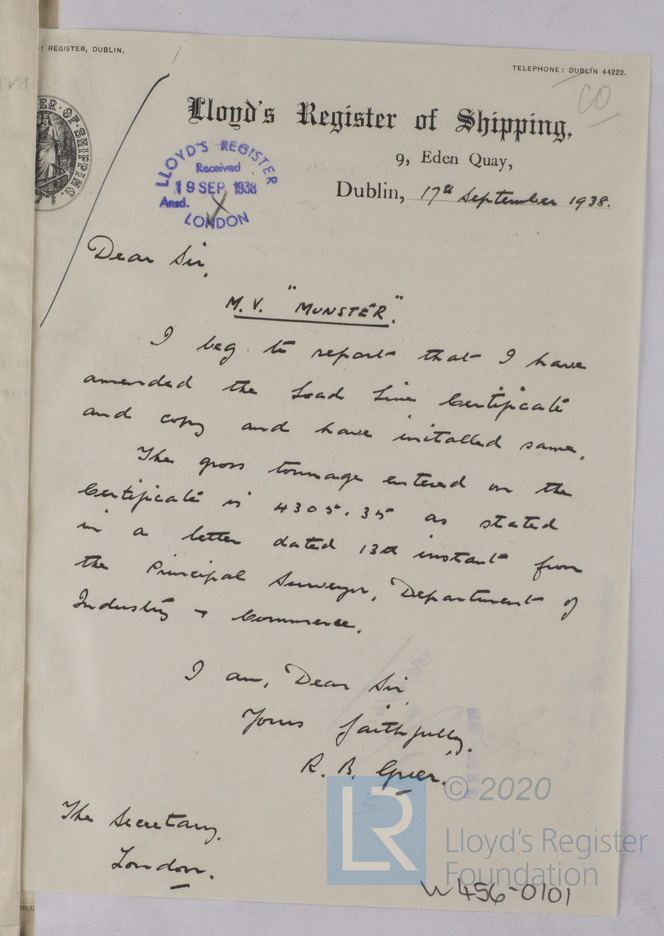 : REGISTER, DUBLIN.
TELEPHONE: DUBLIN 44222.
CO
ER·OF·SHIPPING
Lloyd's Register of Shipping,
9, Eden Quay,
Dublin, 17th September 1938.
LLOYD'S REGISTER
Received
19 SEP. 1938
Ansd.
LONDON
Dear Sir,
M.V. "MUNSTER".
I beg to report that I have
amended the Load Line Certificate
and copy and have initalled same.
The gross tonnage entered on the
Certificate is 4305.35 as stated
in a letter dated 13th instant from
the Principal Surveyor, Department of
Industry & Commerce.
I am, Dear Sir
Yours faithfully,
R. B. Grier.
The Secretary.
London.
LR
© 2020
Lloyd's Register
Foundation
W456-0101